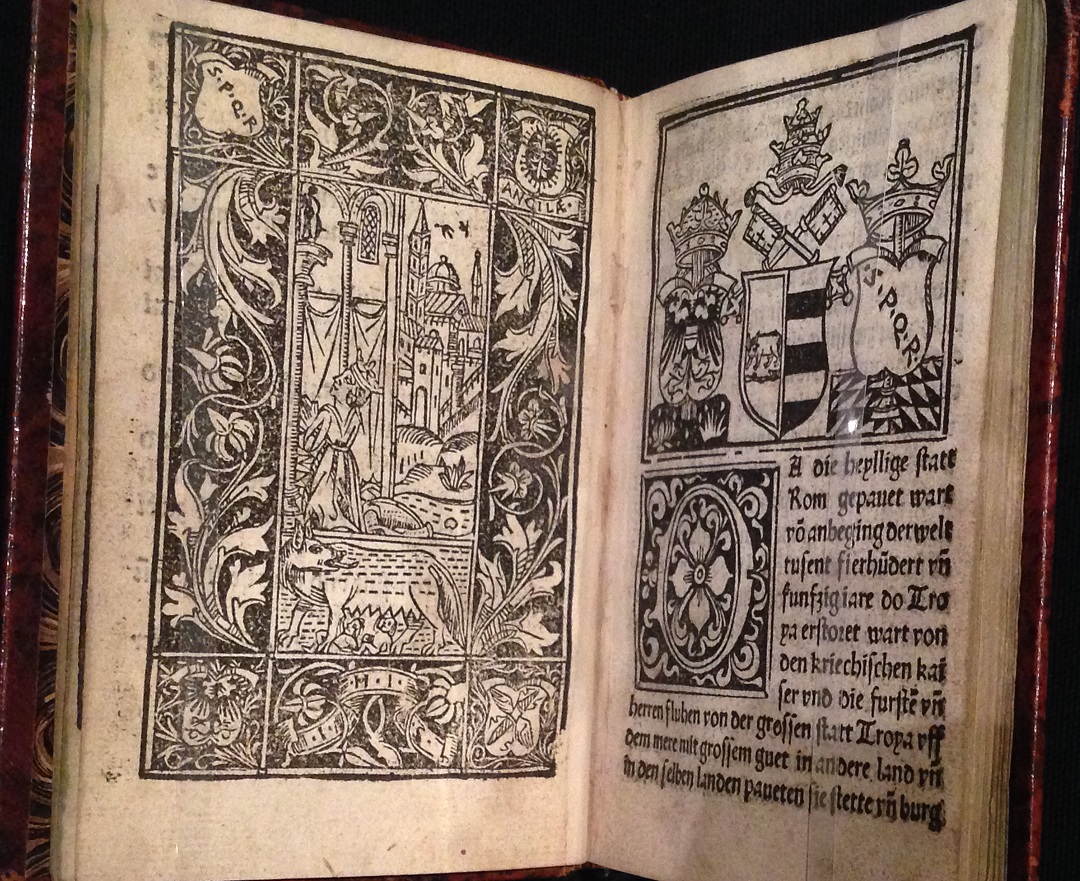 S.P.Q.R
AVGILIÆ.
M.I.
S.P.Q.R.
A die heyllige statt
Rom gepauet wart
vō anbeging der welt
tusent fierhūdert vn̄
funfzig iare do Tro
pa erstoret wart von
den kriechischen kai
ser vnd die furstē vn̄
herren fluhen von der grossen statt Tropa vff
dem mere mit grossem guet in andere land vn̄
in den selben landen paueten sie stette vn̄ burg